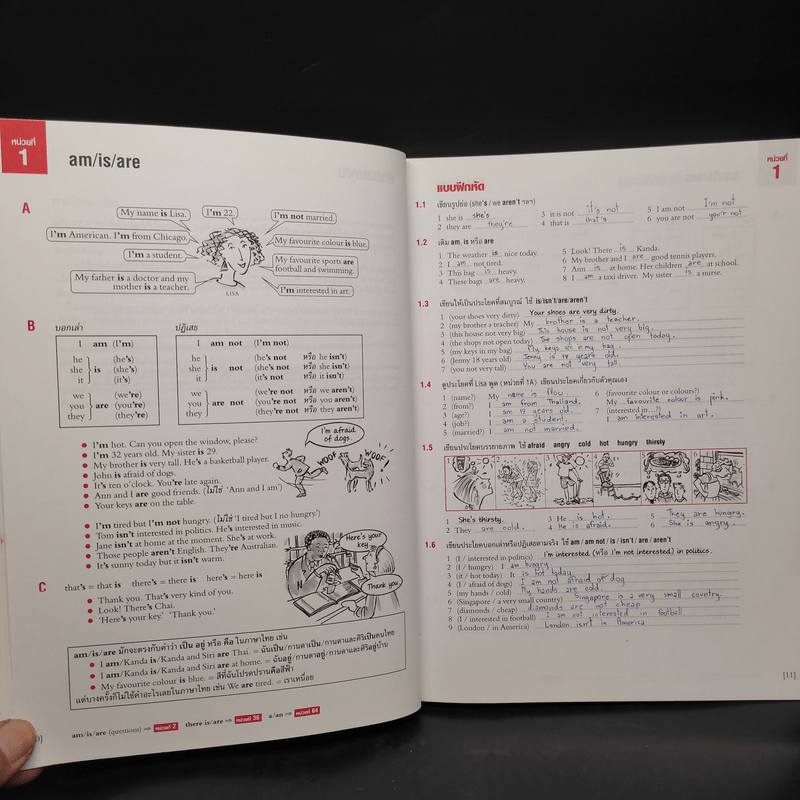 หน่วยที่
1
am/is/are
A
My name is Lisa.
I'm 22.
I'm not married.
I'm American. I'm from Chicago.
My favourite colour is blue.
I'm a student.
My favourite sports are
football and swimming.
My father is a doctor and my
mother is a teacher.
I'm interested in art.
LISA
B
บอกเล่า
ปฏิเสธ
I am (I'm)
he
she is
it
(he's)
(she's)
(it's)
we
you are
they
(we're)
(you're)
(they're)
I am not (I'm not)
he
she is not
it
(he's not หรือ he isn't)
(she's not หรือ she isn't)
(it's not หรือ it isn't)
we
you are not
they
(we're not หรือ we aren't)
(you're not หรือ you aren't)
(they're not หรือ they aren't)
I'm hot. Can you open the window, please?
I'm 32 years old. My sister is 29.
My brother is very tall. He's a basketball player.
John is afraid of dogs.
It's ten o'clock. You're late again.
Ann and I are good friends. (ไม่ใช่ 'Ann and I am')
Your keys are on the table.
I'm afraid
of dogs.
WOOF
WOOF!
I'm tired but I'm not hungry. (ไม่ใช่ 'I tired but I no hungry.')
Tom isn't interested in politics. He's interested in music.
Jane isn't at home at the moment. She's at work.
Those people aren't English. They're Australian.
It's sunny today but it isn't warm.
Here's your
key
Thank you
C
that's = that is there's = there is here's = here is
Thank you. That's very kind of you.
Look! There's Chai.
'Here's your key.' 'Thank you.'
am/is/are มักจะตรงกับคำว่า เป็น อยู่ หรือ คือ ในภาษาไทย เช่น
I am/Kanda is/Kanda and Siri are Thai. = ฉันเป็น/กานดาเป็น/กานดาและศิริเป็นคนไทย
I am/Kanda is/Kanda and Siri are at home. = ฉันอยู่/กานดาอยู่/กานดาและศิริอยู่บ้าน
My favourite colour is blue. = สีที่ฉันโปรดปรานคือสีฟ้า
แต่บางครั้งก็ไม่ใช้คำอะไรเลยในภาษาไทย เช่น We are tired. = เราเหนื่อย
am/is/are (questions) ⇒ หน่วยที่ 2 there is/are ⇒ หน่วยที่ 36 a/an ⇒ หน่วยที่ 64
หน่วยที่
1
แบบฝึกหัด
1.1 เขียนรูปย่อ (she's / we aren't ฯลฯ)
1 she is she's 3 it is not it's not 5 I am not I'm not
2 they are they're 4 that is that's 6 you are not you'r not
1.2 เติม am, is หรือ are
1 The weather is nice today. 5 Look! There is Kanda.
2 I am not tired. 6 My brother and I are good tennis players.
3 This bag is heavy. 7 Ann is at home. Her children are at school.
4 These bags are heavy. 8 I am a taxi driver. My sister is a nurse.
1.3 เขียนให้เป็นประโยคที่สมบูรณ์ ใช้ is/isn't/are/aren't
1 (your shoes very dirty) Your shoes are very dirty.
2 (my brother a teacher) My brother is a teacher.
3 (this house not very big) This house is not very big.
4 (the shops not open today) The shops are not open today.
5 (my keys in my bag) My keys are in my bag.
6 (Jenny 18 years old) Jenny is 18 years old.
7 (you not very tall) You are not very tall.
1.4 ดูประโยคที่ Lisa พูด (หน่วยที่ 1A) เขียนประโยคเกี่ยวกับตัวคุณเอง
1 (name?) My name is 6 (favourite colour or colours?)
2 (from?) I am from Thailand. My favourite colour is pink.
3 (age?) I am 18 years old. 7 (interested in...?)
4 (job?) I am a student. I am interested in art.
5 (married?) I am not married.
1.5 เขียนประโยคบรรยายภาพ ใช้ afraid angry cold hot hungry thirsty
1 2 3 4 5 6
1 She's thirsty. 3 He is hot. 5 They are hungry.
2 They are cold. 4 He is afraid. 6 She is angry.
1.6 เขียนประโยคบอกเล่าหรือปฏิเสธตามจริง ใช้ am / am not / is / isn't / are / aren't
1 (I / interested in politics) I'm interested (หรือ I'm not interested) in politics.
2 (I / hungry) I am hungry
3 (it / hot today) It is hot today
4 (I / afraid of dogs) I am not afraid of dog
5 (my hands / cold) My hands are cold
6 (Singapore / a very small country) Singapore is a very small country.
7 (diamonds / cheap) diamonds are not cheap
8 (I / interested in football) I am not interested in football
9 (London / in America) London isn't in America
[11]